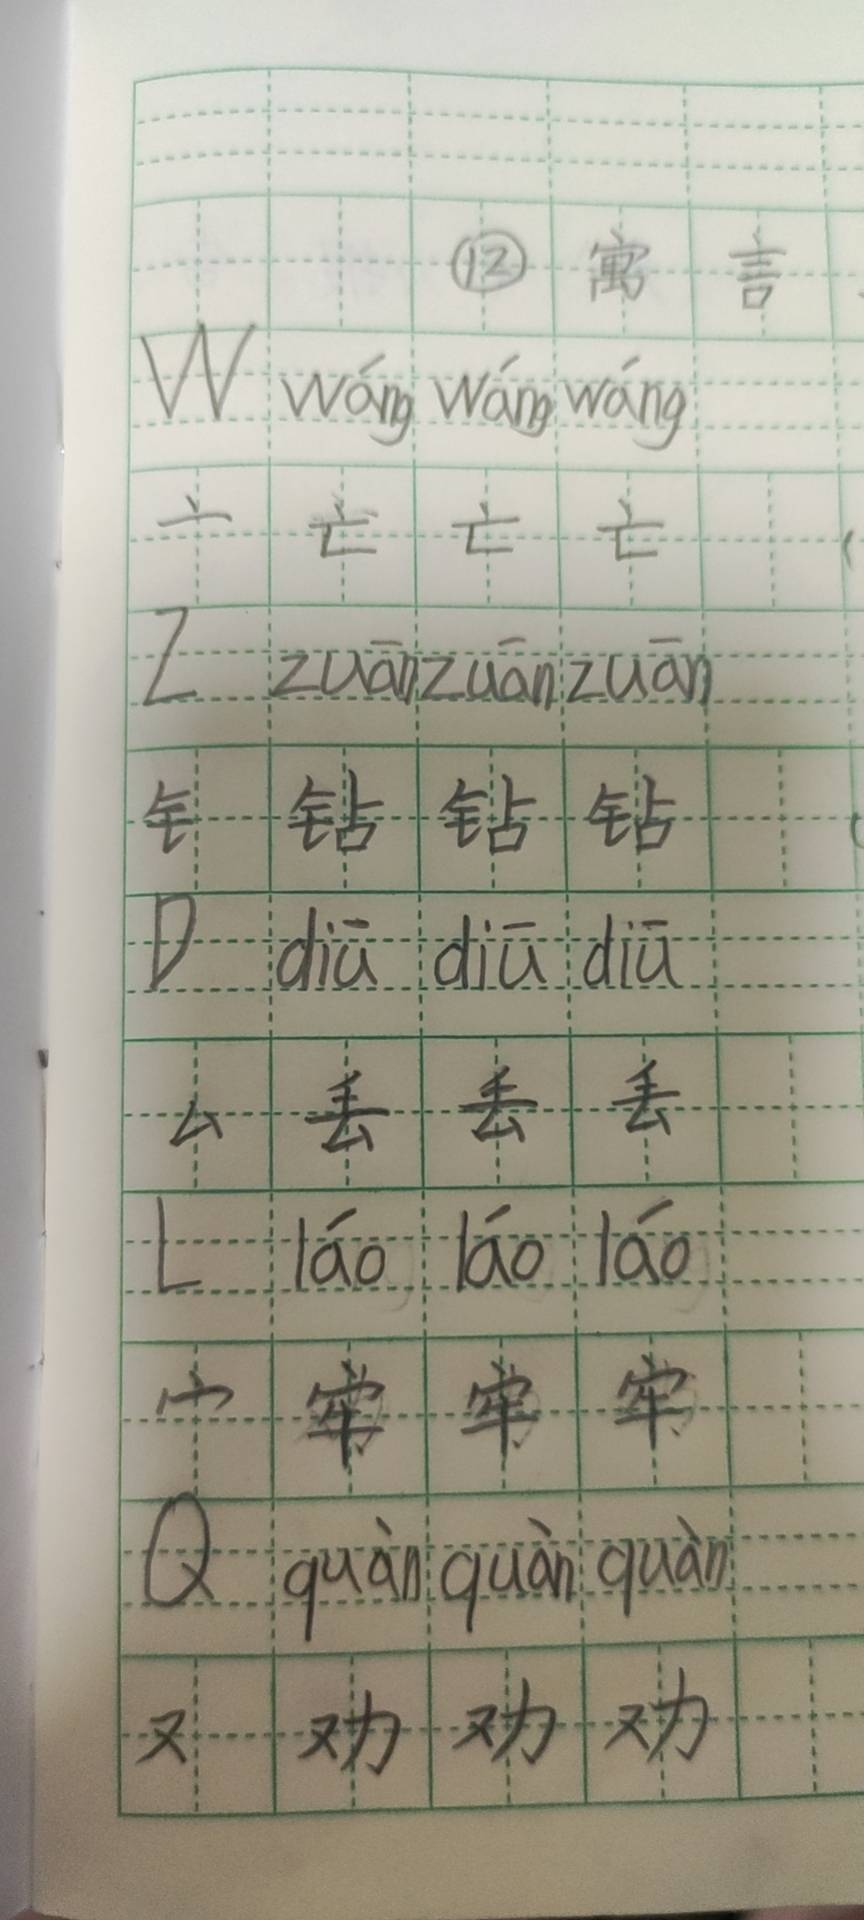 ⑫ 寓 言
W wáng wáng wáng
亠 亡 亡 亡
Z zuān zuān zuān
钅 钻 钻 钻
D diū diū diū
厶 丢 丢 丢
L láo láo láo
宀 牢 牢 牢
Q quàn quàn quàn
又 劝 劝 劝